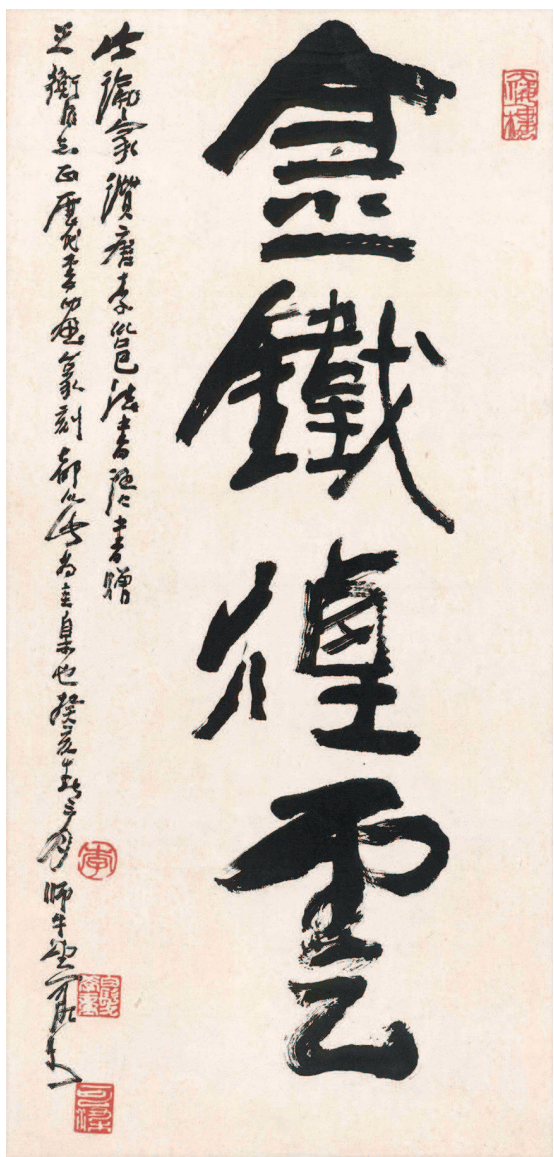 金鐵煙雲
此論家讚唐李邕法書語書贈
衡同志正歷代書畫篆刻都以此為圭臬也癸亥春三月師牛堂可染
李
可染